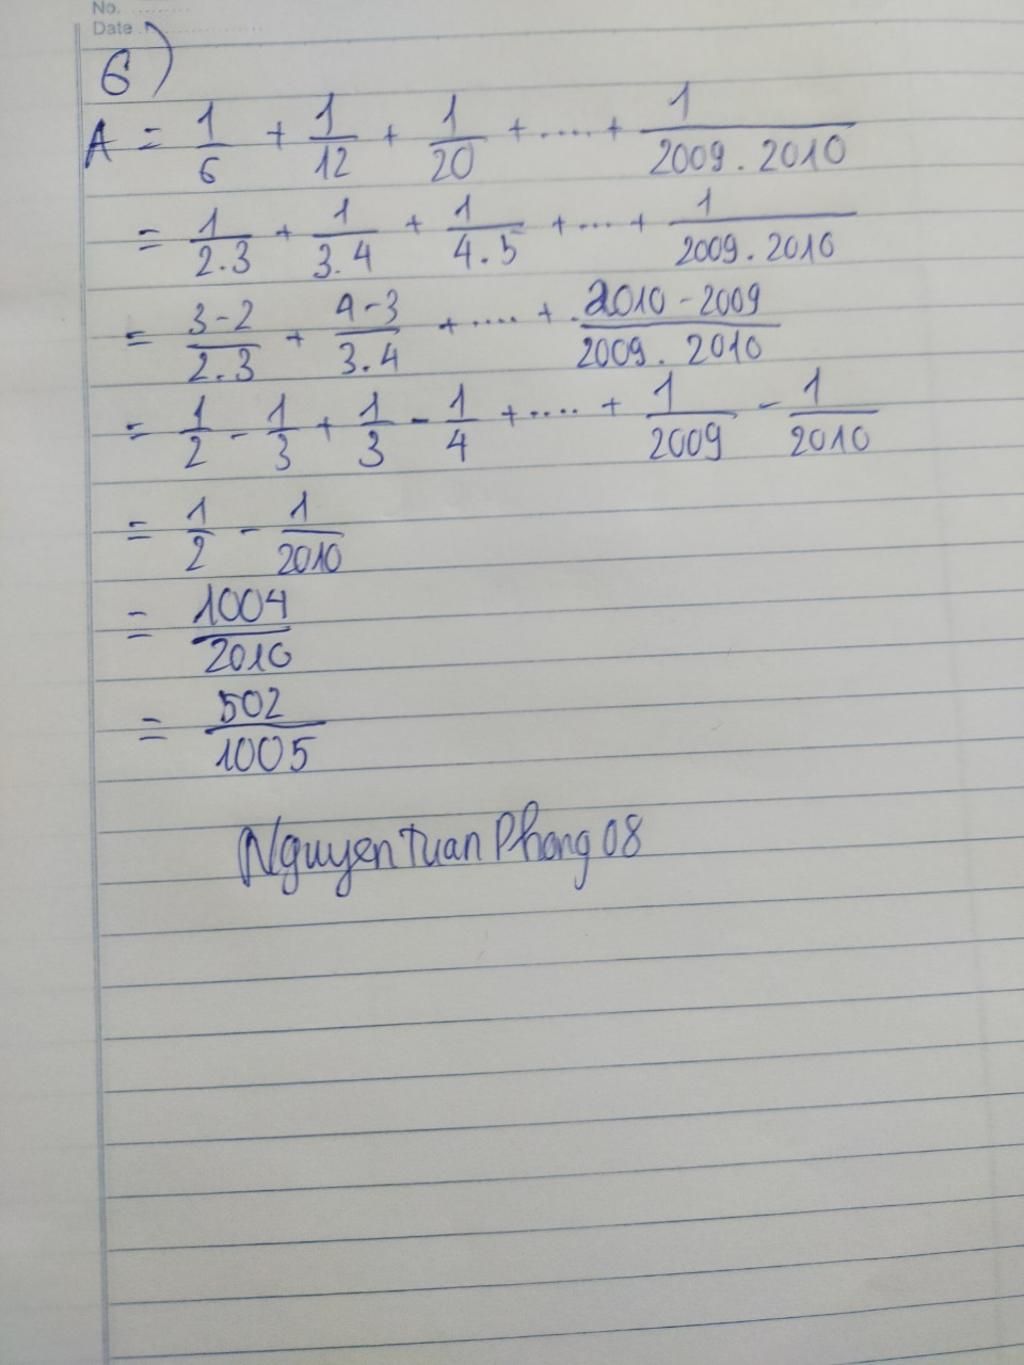 No.
Date
6)
A = 1/6 + 1/12 + 1/20 + .... + 1/2009.2010
= 1/2.3 + 1/3.4 + 1/4.5 + ... + 1/2009.2010
= 3-2/2.3 + 4-3/3.4 + .... + 2010-2009/2009.2010
= 1/2 - 1/3 + 1/3 - 1/4 + .... + 1/2009 - 1/2010
= 1/2 - 1/2010
= 1004/2010
= 502/1005
Nguyen Tuan Phong 08